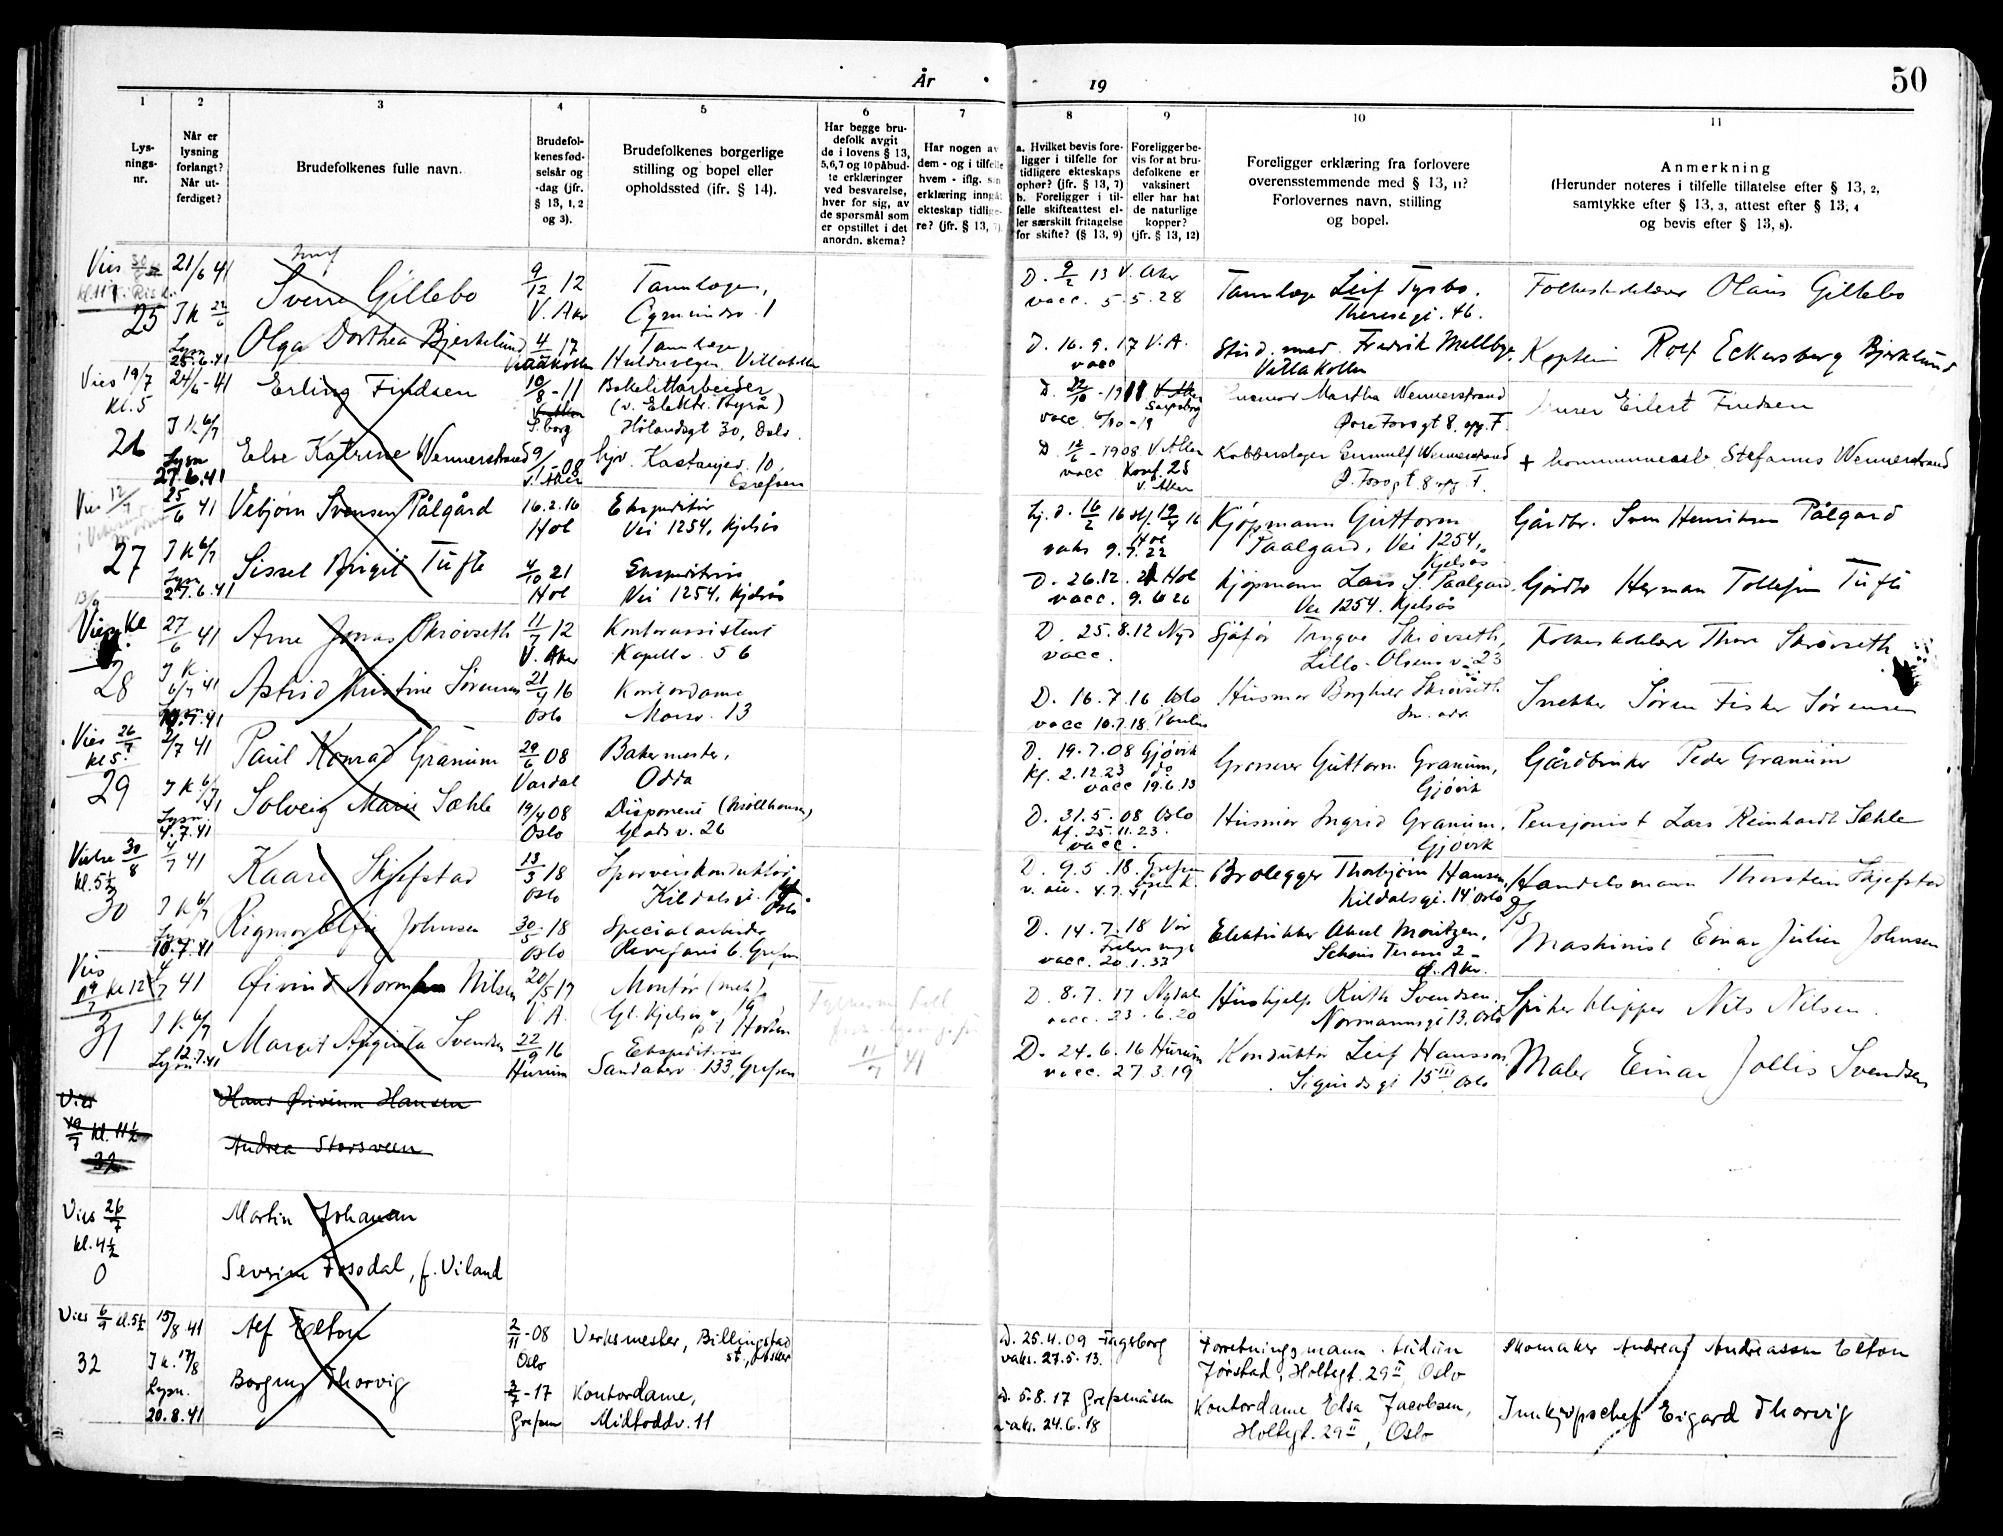 År 19
50
1 2 3 4 5 6 7 8 9 10 11
Lysningsnr.
Når er lysning forlangt? Når utferdiget?
Brudefolkenes fulle navn.
Brudefolkenes fødselsår og -dag (jfr. § 13, 1, 2 og 3).
Brudefolkenes borgerlige stilling og bopel eller opholdssted (jfr. § 14).
Har begge brudefolk avgit de i lovens § 13, 5,6,7 og 10 påbudte erklæringer ved besvarelse, hver for sig, av de spørsmål som er opstillet i det anordn. skema?
Har nogen av dem - og i tilfelle hvem - iflg. sin erklæring inngått ekteskap tidligere? (jfr. § 13, 7).
a. Hvilket bevis foreligger i tilfelle for tidligere ekteskaps ophør? (jfr. § 13, 7) b. Foreligger i tilfelle skifteattest eller særskilt fritagelse for skifte? (§ 13, 9)
Foreligger bevis for at brudefolkene er vaksinert eller har hat de naturlige kopper? (jfr. § 13, 12)
Foreligger erklæring fra forlovere overensstemmende med § 13, 11? Forlovernes navn, stilling og bopel.
Anmerkning (Herunder noteres i tilfelle tillatelse efter § 13, 2, samtykke efter § 13, 3, attest efter § 13, 4 og bevis efter § 13, 8).
Vies 21/6 41 Sverre Gillebo 9/12 12 Tannlæge, D. 9/2 13 V. Aker Tannlæge Leif Tysbo. Folkeskolelærer Olaus Gillebo
25 I K 22/6 V. Aker vacc. 5.5.28 Theresegt. 46.
Olga Dorthea Bjerkelund 4/4 17 Tannlæge D. 10.9.17 V.A. Stud. med. Fredrik Mellbye, Kaptein Rolf Eckersberg Bjerklund
Lysn 25.6.41 Huldreveien Villakollen vacc Villakollen
Vies 19/7 24/6-41 Erling Findsen 10/8-11 Bakelittarbeider
kl. 5 (v. Elektr. Byrå) Sarpsborg
I K 6/7 S.borg Hølandsgt 30, Oslo. Øvre Fossgt 8. opg. F. Eilert Findsen
26 Else Katrine Wennerstrand 9/1-08 Kastanjev. 10, D. 12/6-1908 V. Aker Kobberslager Wennerstrand + Stefanus Wennerstrand
Lysn 27.6.41 V. Aker Grefsen vacc Konf. 23 V. Aker Ø. Fossgt. 8 opg. F.
Vies 12/7 25/6 41 Vebjørn Svensen Pålgård 16.2.16 Ekspeditør Hj. d. 16/2 16 Kjøpmann Guttorm Gårdbr. Sven Henriksen Pålgard
Hol Vei 1254, Kjelsås Hol Paalgard, Vei 1254, Kjelsås
27 I K 6/7 Sissel Birgit Tufte 4/10 21 Ekspeditrise D. 26.12.21 Hol Kjøpmann Lars S. Paalgard, Gårdbr Herman Tollefsen Tufte
Lysn 27.6.41 Hol Vei 1254, Kjelsås vacc. 9.6.26 Vei 1254. Kjelsås
Vies kl 27/6 41 Arne Jonas Skrøvseth 11/7 12 Kontorassistent D. 25.8.12 Sjåfør Trygve Skrøvseth, Folkeskolelærer Thore Skrøvseth
V. Aker Kapellv. 56 vacc. Lille-Olsens v. 23
28 I K. 6/7 41 Astrid Kristine Sørensen 21/4 16 Kontordame D. 16.7.16 Oslo Husmor Borghild Skrøvseth Snekker Søren Fisker Sørensen
Oslo 13 vacc 10.7.18 Paulus
Vies 26/7 2/7 41 Paul Konrad Granum 29/6 08 Bakermester, D. 19.7.08 Gjøvik Grosserer Guttorm Granum, Gårdbruker Peder Granum
kl 5 Vardal Odda Kf. 2.12.23 do vacc 19.6.13 Gjøvik
29 I K 6/7 Solveig Marie Sæhle 19/4 08 Disponent D. 31.5.08 Oslo Husmor Ingrid Granum, Pensjonist Lars Reinhardt Sæhle
Lysn 4.7.41 Oslo Gladsv. 26 kf. 25.11.23. vacc. Gjøvik
Vielse 30/8 4/7 41 Kaare Skjefstad 13/3 18 Sporveiskonduktør, D. 9.5.18. Grefsen Brolegger Thorbjørn Hansen, Handelsmann Thorstein Skjefstad
kl. 5½ Oslo Kildalsgt. Oslo Kildalsgt. 14 Oslo
30 I K 6/7 Rigmor Elfie Johnsen 30/5-18 Specialarbeider D. 14.7.18 Vår Elektriker Aksel Moritzen, Maskinist Einar Julien Johnsen
Lysn 10.7.41 Oslo Revefaret 6. Grefsen vacc. 20.1.33 V. Aker.
Vies 19/7 kl 12 4/7 41 Øivind Norman Nilsen 20/5 17 Montør (mek) D. 8.7.17 Nydalen Hushjelp Ruth Svendsen, Spikerklipper Nils Nilsen.
V. A. Gl. Kjelsåsv. 19 vacc. 23.6.20 Normannsgt 13, Oslo
31 I K 6/7 Margit Augusta Svendsen 22/9 16 Ekspeditrise 11/7 41 D. 24.6.16 Hurum Konduktør Leif Hansson, Maler Einar Jollis Svendsen
Lysn 12.7.41 Hurum Sandakerv. 133, Grefsen vacc. 27.3.19 Sigurdsgt 15 III, Oslo
Vies Hans Øivinn Hansen
19/7 kl. 11½
32 Andrea Storsveen
Vies 26/7 Martin Johansen
kl. 4½
0 Sevrine Fosodal, f. Viland
Vies 6/9 kl. 5½ 15/8 41 Alf Elton 2/11-08 Verksmester, Billingstad D. 25.4.09 Fagerborg Forretningsmann Audun Skomaker Andreas Andreassen Elton
Oslo st., Asker vaks. 27.5.13. Jørstad, Holtegt. 29 II, Oslo
32 I k. 17/8 Borgny Thorvig 3/7-17 Kontordame, D. 5.8.17 Grefsenåsen Kontordame Elsa Jacobsen, Innkjøpschef Eigard Thorvig
Lysn. 20.8.41 Grefsen Midtoddv. 11 vaks. 24.6.18 Holtegt. 29 II, Oslo